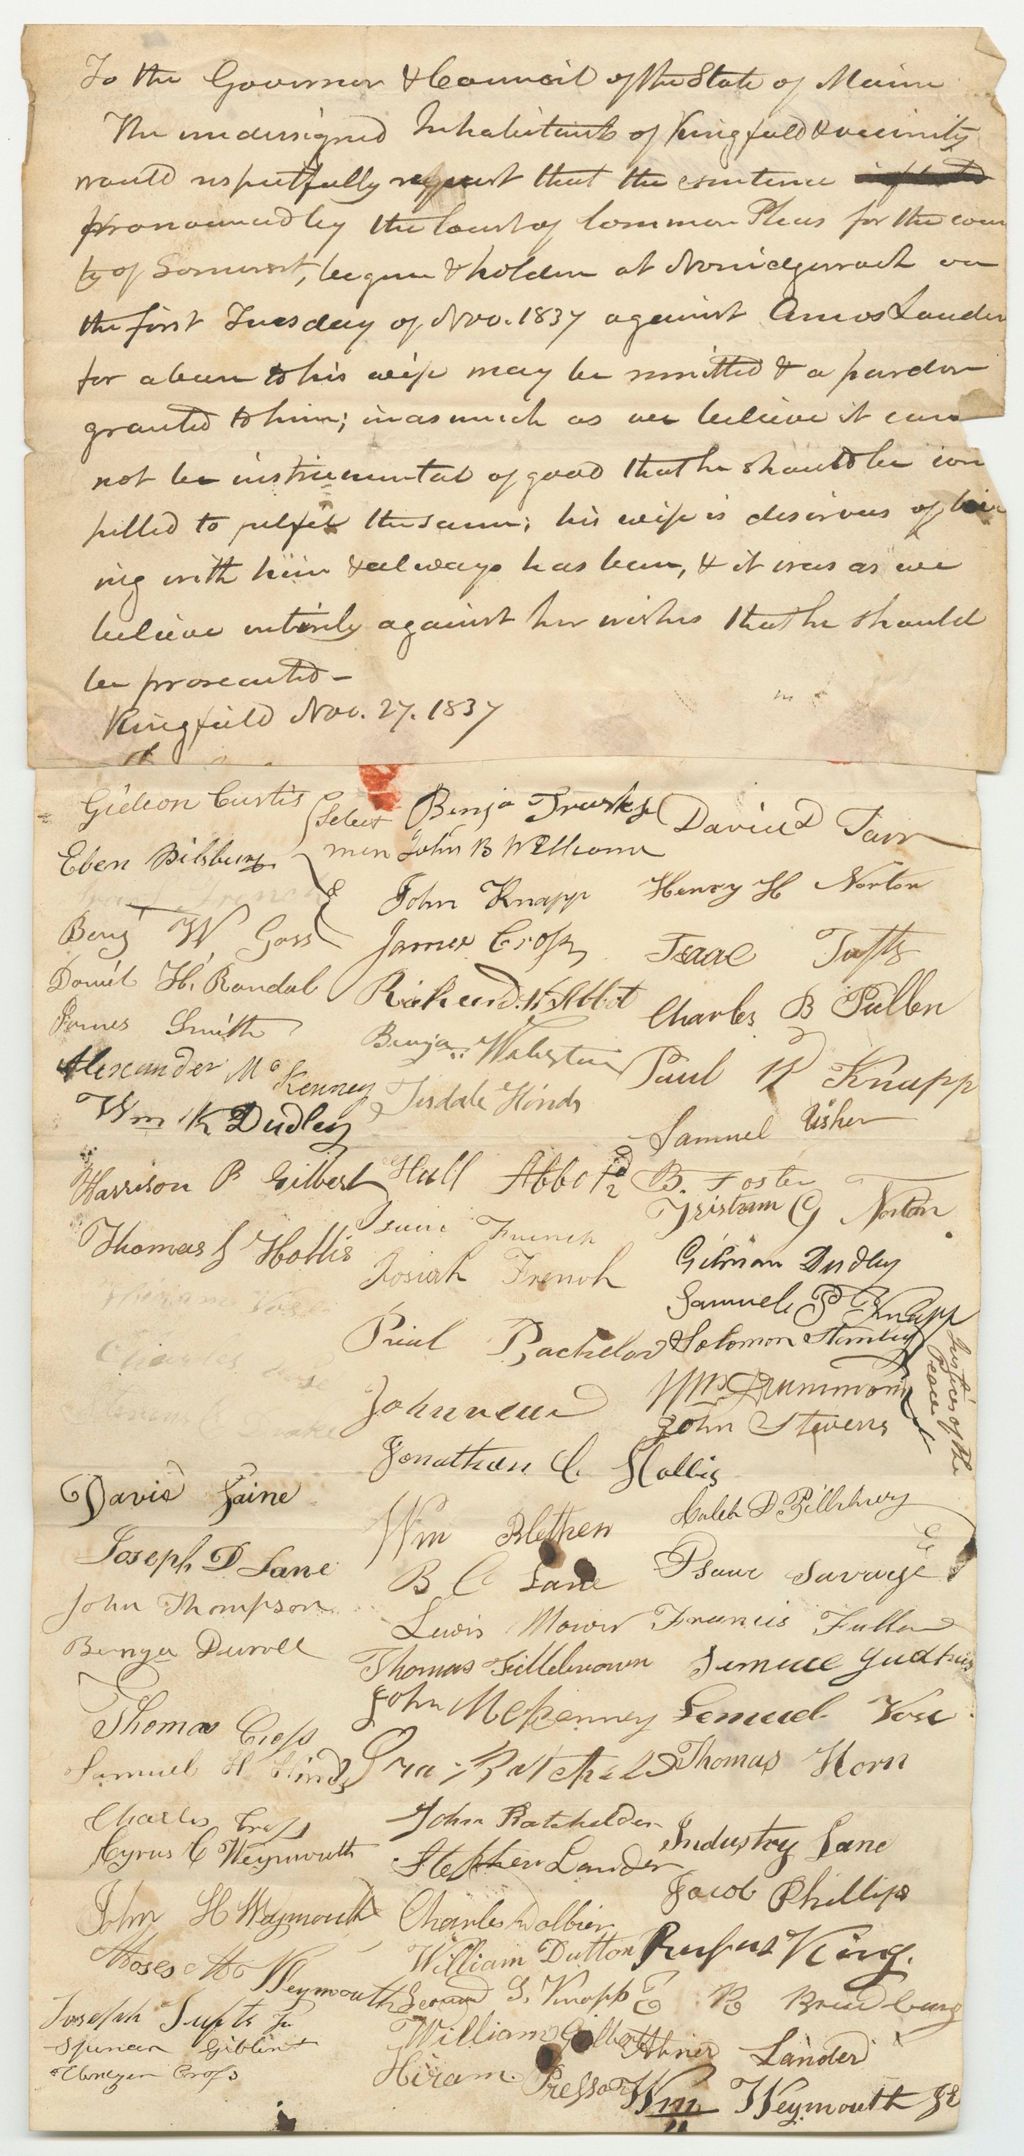 To the Governor & Council of the State of Maine
The undersigned Inhabitants of Kingfield & vicinity
would respectfully request that the sentence
pronounced by the Court of Common Pleas for the coun
ty of Somerset, begun & holden at Norridgewock on
the first Tuesday of Nov. 1837 against Amos Lander
for abuse to his wife may be remitted & a pardon
granted to him; inasmuch as we believe it can
not be instrumental of good that he should be com
pelled to the same; his wife is desirous of
ing with him & always has been, & it was as we
believe entirely against her wishes that he should
be prosecuted -
Kingfield Nov. 27. 1837
Gideon Curtis
Eben Pilsbury
Select
men
Benj W Goss
Daniel H. Randal
James Smith
Alexander McKenney
Wm K Dudley
Harrison P Gilbert
Thomas S Hollis
Hiram Vose
Charles
David Laine
Joseph D Lane
John Thompson
Benja Durrell
Thomas Cross
Samuel H Hinds
Charles Cross
Cyrus C Weymouth
John H Weymouth
Moses Weymouth
Joseph Tufts Jr
Giblin
Ebenezer Cross
Benja Trask Jr
John B Williams
John Knapp
James Cross
Richard H Abbot
Benja Webster
Tisdale Hinds
Hull Abbot 2d
Isaac French
Josiah French
Bachelor
John
Jonathan C. Hollis
Wm Blethen
B C Lane
Lewis Mower
Thomas Fillebrown
John McKenney
Ira Batchelder
John Batchelder
Stephen Lander
Charles Dolbier
William Dutton
G. Knapp
William Gilbert
Hiram Presson
David Tarr
Henry H Norton
Isaac Tufts
Charles B Pullen
Paul R Knapp
Samuel Usher
B. Foster
Tristram G Norton
Gilman Dudley
Samuel P Knapp
Solomon Stanley
Justices of the
Peace
Wm Drummond
John Stevens
Caleb D Pillsbury
Isaac Savage
Francis Fuller
Lemuel Vose
Thomas Horn
Industry Lane
Jacob Phillips
Rufus King.
E R Bradbury
Abner Lander
Wm Weymouth Jr